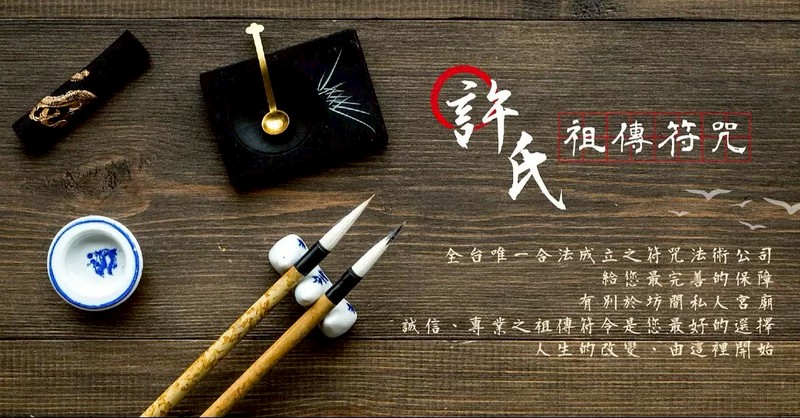 許氏
祖傳符咒
全台唯一合法成立之符咒法術公司
給您最完善的保障
有別於坊間私人宮廟
誠信、專業之祖傳符令是您最好的選擇
人生的改變、由這裡開始